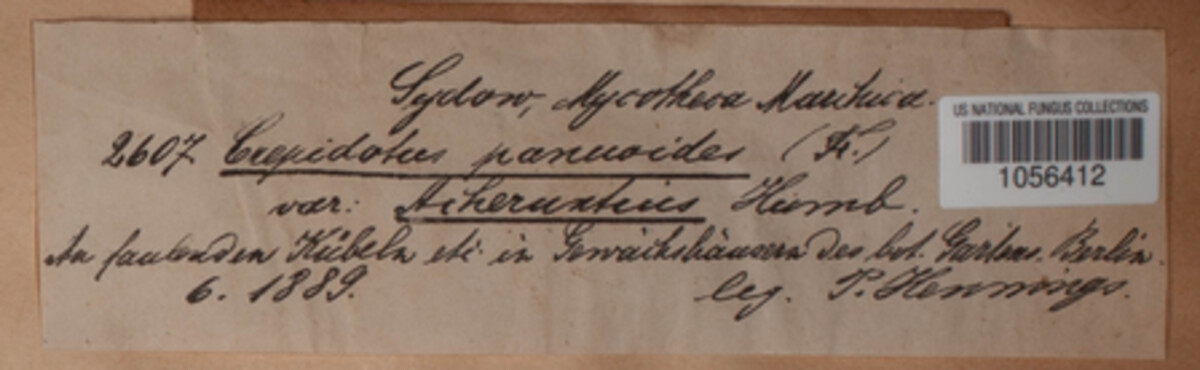 Sydow, Mycotheca Marchica.
2607 Crepidotus panuoides (Fr.)
var: Acheruntius Humb.
An faulenden Kübeln etc. in Gewächshäusern des bot. Gartens. Berlin.
6. 1889. leg. P. Hennings.
US NATIONAL FUNGUS COLLECTIONS
1056412